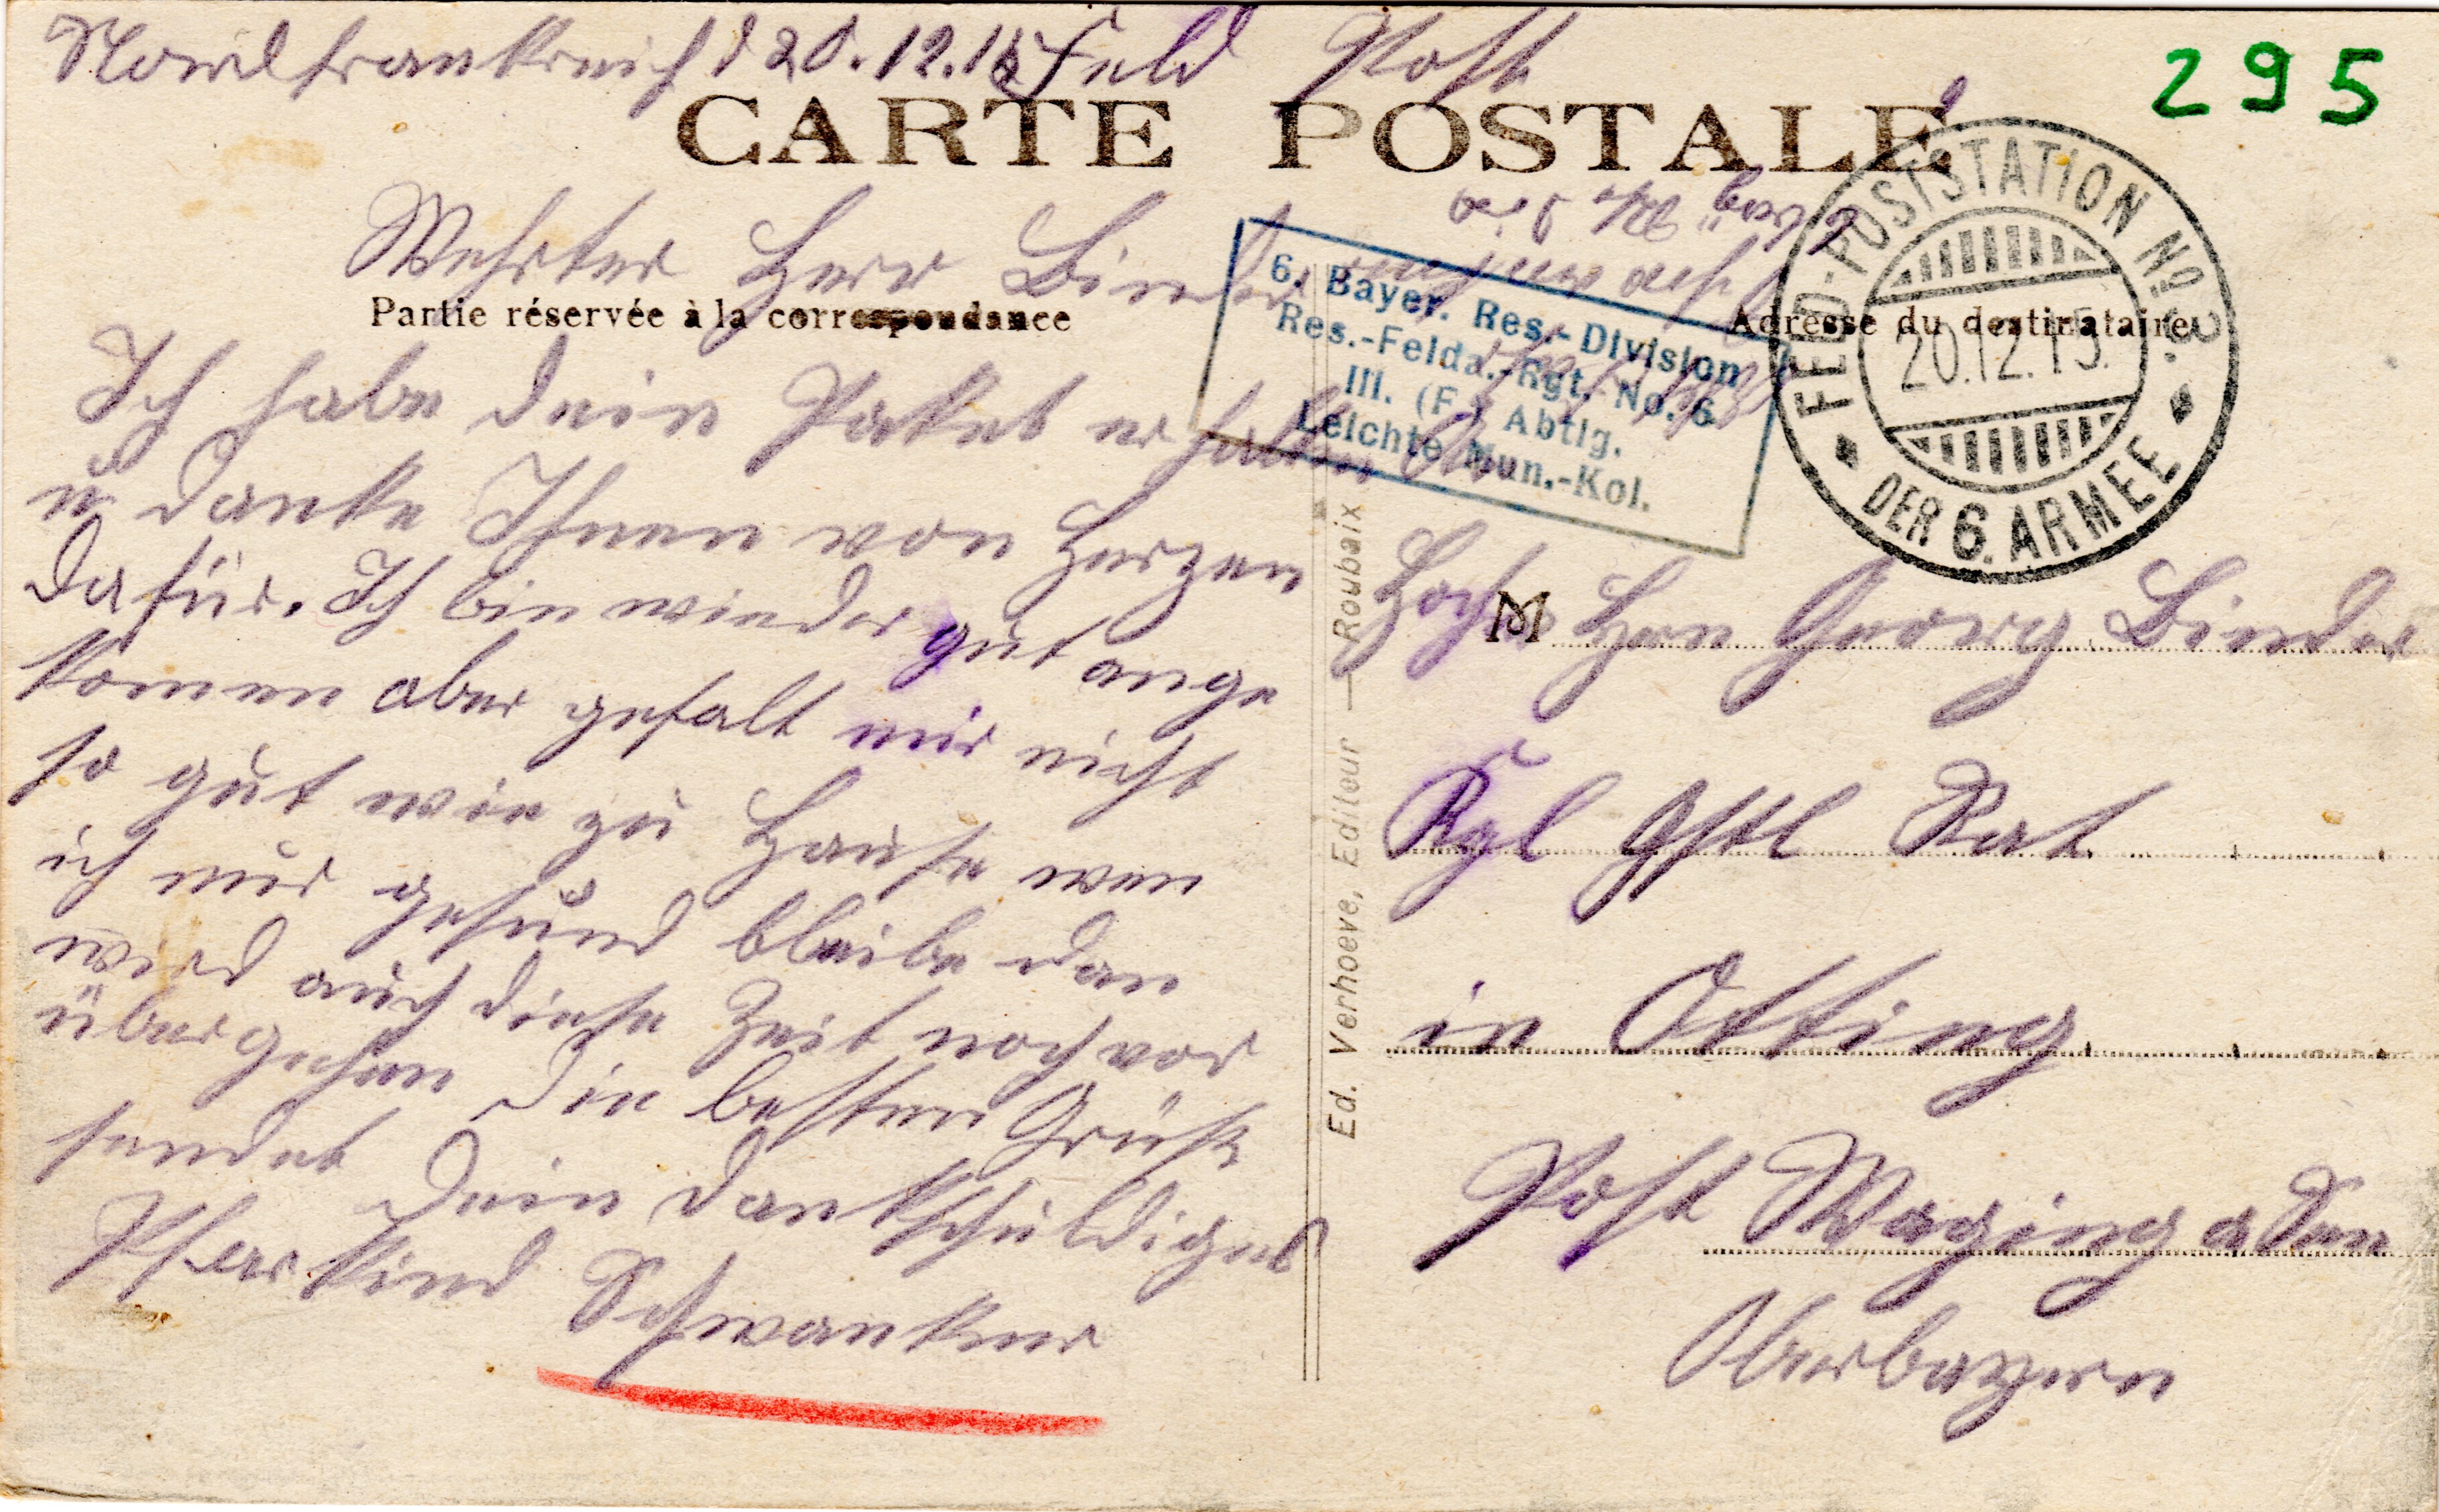 Nordfrankreich d 20.12.15 Feld Post
295
CARTE POSTALE
Werhter Herr Binder
Partie réservée à la correspondance
Adresse du destinataire
Ich habe dein Paket erhalten
u danke Ihnen von Herzen
dafür. Ich bin wieder gut ange
komen aber gefalt mir nicht
so gut wie zu Hause wen
ich nur gesund bleibe dan
wird auch diese Zeit noch vor
übergehen die besten Grüße
sendet Dein dankschuldiges
Pfarkind Schwankner
6. Bayer. Res.-Division
Res.-Felda.-Rgt. No. 6
III. (F.) Abtlg.
Leichte Mun.-Kol.
FELD-POSTSTATION No. 3.
20.12.15.
DER 6. ARMEE
Ed. Verhoeve, Editeur — Roubaix
M
Hoch Hern Georg Binder
Kgl Gstl Rat
in Otting
Post Waging a See
Oberbayern